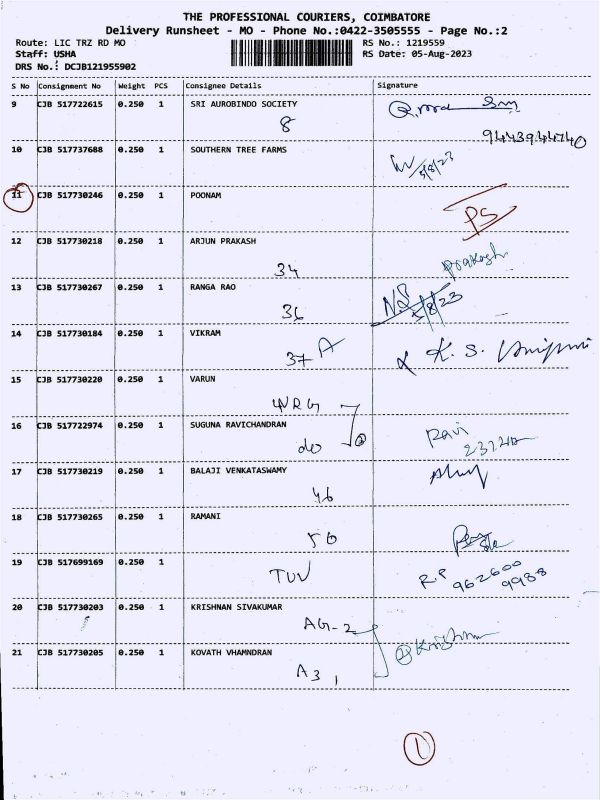 THE PROFESSIONAL COURIERS, COIMBATORE
Delivery Runsheet - MO - Phone No.:0422-3505555 - Page No.:2
Route: LIC TRZ RD MO RS No.: 1219559
Staff: USHA RS Date: 05-Aug-2023
DRS No.: DCJB121955902
S No Consignment No Weight PCS Consignee Details Signature
9 CJB 517722615 0.250 1 SRI AUROBINDO SOCIETY
8
9443944740
10 CJB 517737688 0.250 1 SOUTHERN TREE FARMS
5/8/23
11 CJB 517730246 0.250 1 POONAM
PS
12 CJB 517730218 0.250 1 ARJUN PRAKASH
34 Prakash
13 CJB 517730267 0.250 1 RANGA RAO
36 N.S 5/8/23
14 CJB 517730184 0.250 1 VIKRAM
37 A K. S.
15 CJB 517730220 0.250 1 VARUN
WRG
16 CJB 517722974 0.250 1 SUGUNA RAVICHANDRAN
do 2 Ravi
17 CJB 517730219 0.250 1 BALAJI VENKATASWAMY
46
18 CJB 517730265 0.250 1 RAMANI
50
19 CJB 517699169 0.250 1
TUV R.P 962600
9988
20 CJB 517730203 0.250 1 KRISHNAN SIVAKUMAR
AG-2
2 Krishna
21 CJB 517730205 0.250 1 KOVATH VHAMNDRAN
A3 1
1